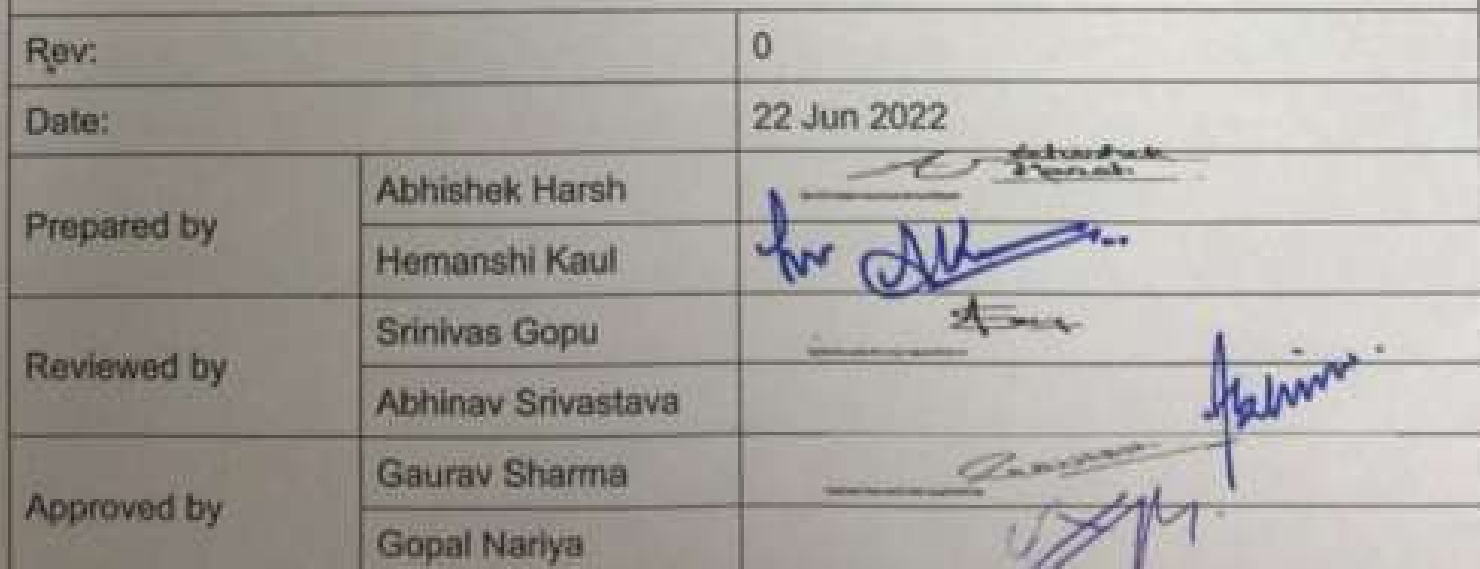 Rev: 0
Date: 22 Jun 2022
Prepared by
Abhishek Harsh
Hemanshi Kaul
Reviewed by
Srinivas Gopu
Abhinav Srivastava
Approved by
Gaurav Sharma
Gopal Nariya